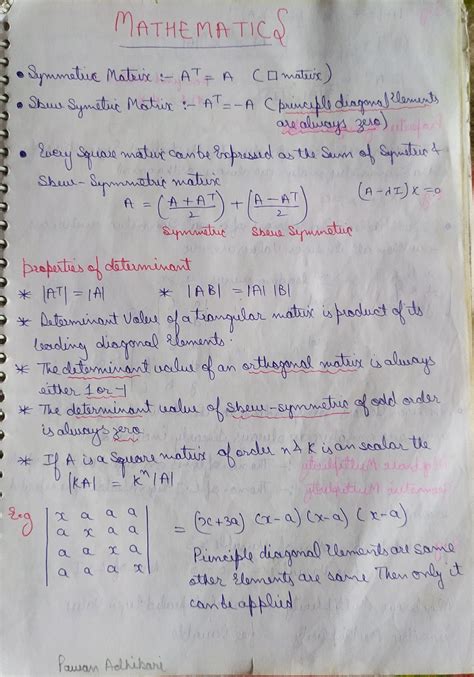 MATHEMATICS
• Symmetric Matrix :- Aᵀ = A (□ matrix)
• Skew Symetric Matrix :- Aᵀ = -A (principle diagonal Elements
are always zero)
• Every Square matrix can be Expressed as the Sum of Symetric &
Skew-Symmetric matrix
A = (A + Aᵀ / 2) + (A - Aᵀ / 2) (A - λI) X = 0
Symmetric Skew Symmetric
Properties of determinant
* |Aᵀ| = |A| * |AB| = |A| |B|
* Determinant Value of a triangular matrix is product of its
leading diagonal Elements.
* The determinant value of an orthogonal matrix is always
either 1 or -1
* The determinant value of skew-symmetric of odd order
is always zero
* If A is a Square matrix of order n & K is an scalar the
|KA| = Kⁿ |A|
E.g
| x a a a |
| a x a a |
| a a x a |
| a a a x |
= (x+3a) (x-a) (x-a) (x-a)
Principle diagonal Elements are same
other Elements are same Then only it
can be applied
Pawan Adhikari